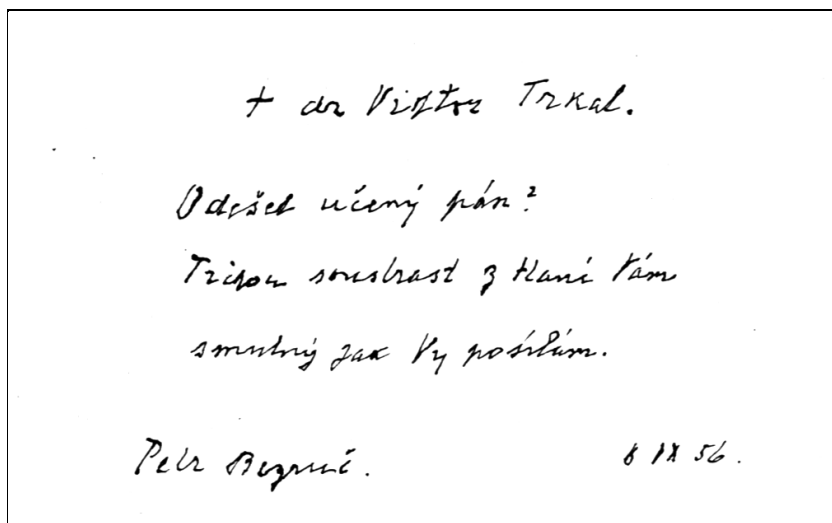 + dr Viktor Trkal.
Odešel učený pán?
Tichou soustrast z Hané Vám
smutný jak Vy posílám.
Petr Bezruč. 8 IX 56.